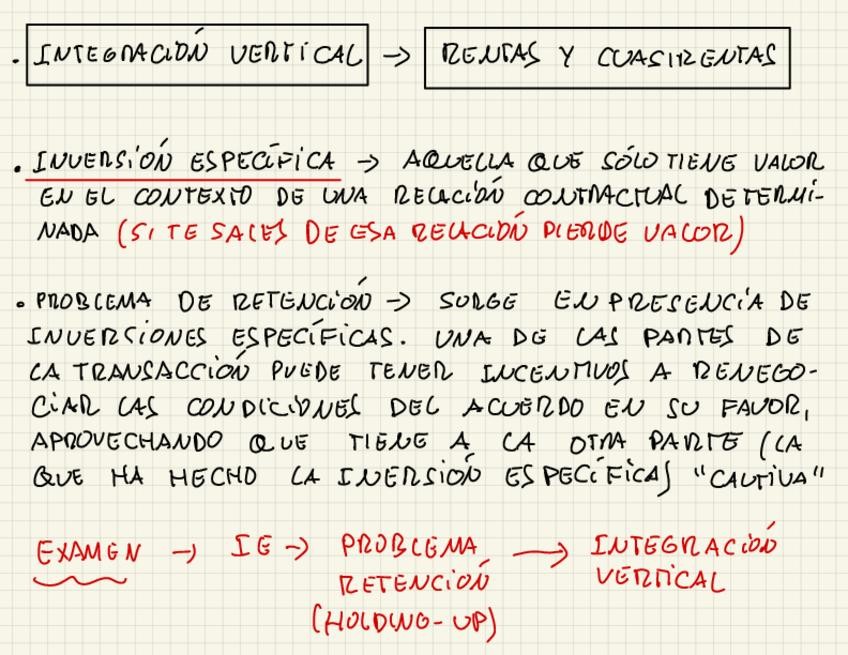 . INTEGRACIÓN VERTICAL → RENTAS Y CUASIRENTAS
. INVERSIÓN ESPECÍFICA → AQUELLA QUE SÓLO TIENE VALOR
EN EL CONTEXTO DE UNA RELACIÓN CONTRACTUAL DETERMI-
NADA (SI TE SALES DE ESA RELACIÓN PIERDE VALOR)
. PROBLEMA DE RETENCIÓN → SURGE EN PRESENCIA DE
INVERSIONES ESPECÍFICAS. UNA DE LAS PARTES DE
LA TRANSACCIÓN PUEDE TENER INCENTIVOS A RENEGO-
CIAR LAS CONDICIONES DEL ACUERDO EN SU FAVOR,
APROVECHANDO QUE TIENE A LA OTRA PARTE (LA
QUE HA HECHO LA INVERSIÓN ESPECÍFICA) "CAUTIVA"
EXAMEN → IE → PROBLEMA → INTEGRACIÓN
RETENCIÓN VERTICAL
(HOLDING-UP)